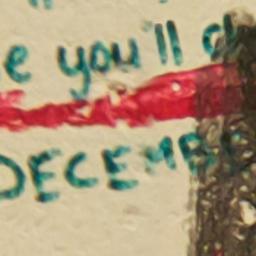 e you'll d
DECEMBE